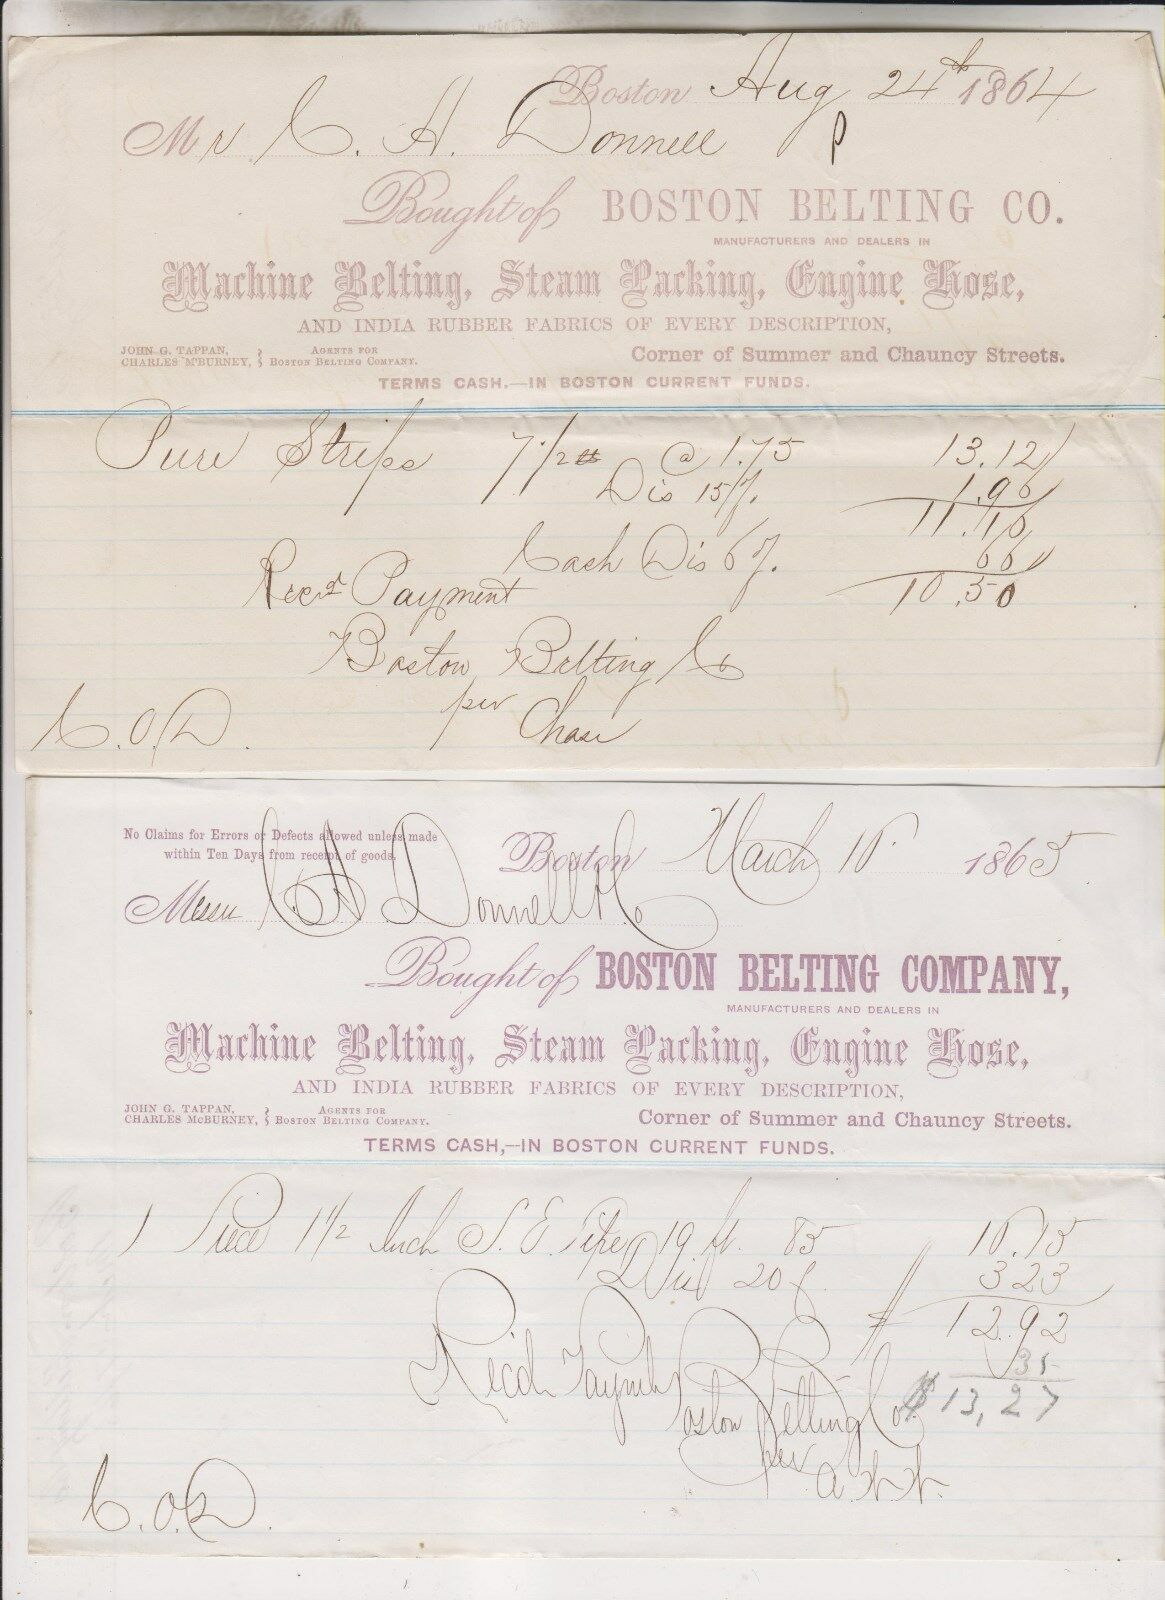 Boston Aug 24th 1864
Mr C. A. Donnell
Bought of BOSTON BELTING CO.
MANUFACTURERS AND DEALERS IN
Machine Belting, Steam Packing, Engine Hose,
AND INDIA RUBBER FABRICS OF EVERY DESCRIPTION,
JOHN G. TAPPAN, CHARLES McBURNEY, } AGENTS FOR BOSTON BELTING COMPANY. Corner of Summer and Chauncy Streets.
TERMS CASH.—IN BOSTON CURRENT FUNDS.
Pure Strips 7 1/2 @ 1.75 13.12
Dis 15%. 1.96
11.16
Cash Dis 6%. 66
Recd Payment 10.50
Boston Belting Co
per Chase
C.O.D.
No Claims for Errors or Defects allowed unless made
within Ten Days from receipt of goods.
Boston March 10 1865
Messrs C A Donnell & Co
Bought of BOSTON BELTING COMPANY,
MANUFACTURERS AND DEALERS IN
Machine Belting, Steam Packing, Engine Hose,
AND INDIA RUBBER FABRICS OF EVERY DESCRIPTION,
JOHN G. TAPPAN, CHARLES McBURNEY, } AGENTS FOR BOSTON BELTING COMPANY. Corner of Summer and Chauncy Streets.
TERMS CASH,—IN BOSTON CURRENT FUNDS.
1 Piece 1 1/2 Inch S. E. Pipe 19 ft. 85 16.15
Dis 20% 3 23
12.92
35
Recd Paymt $13,27
Boston Belting Co
per
C.O.D.